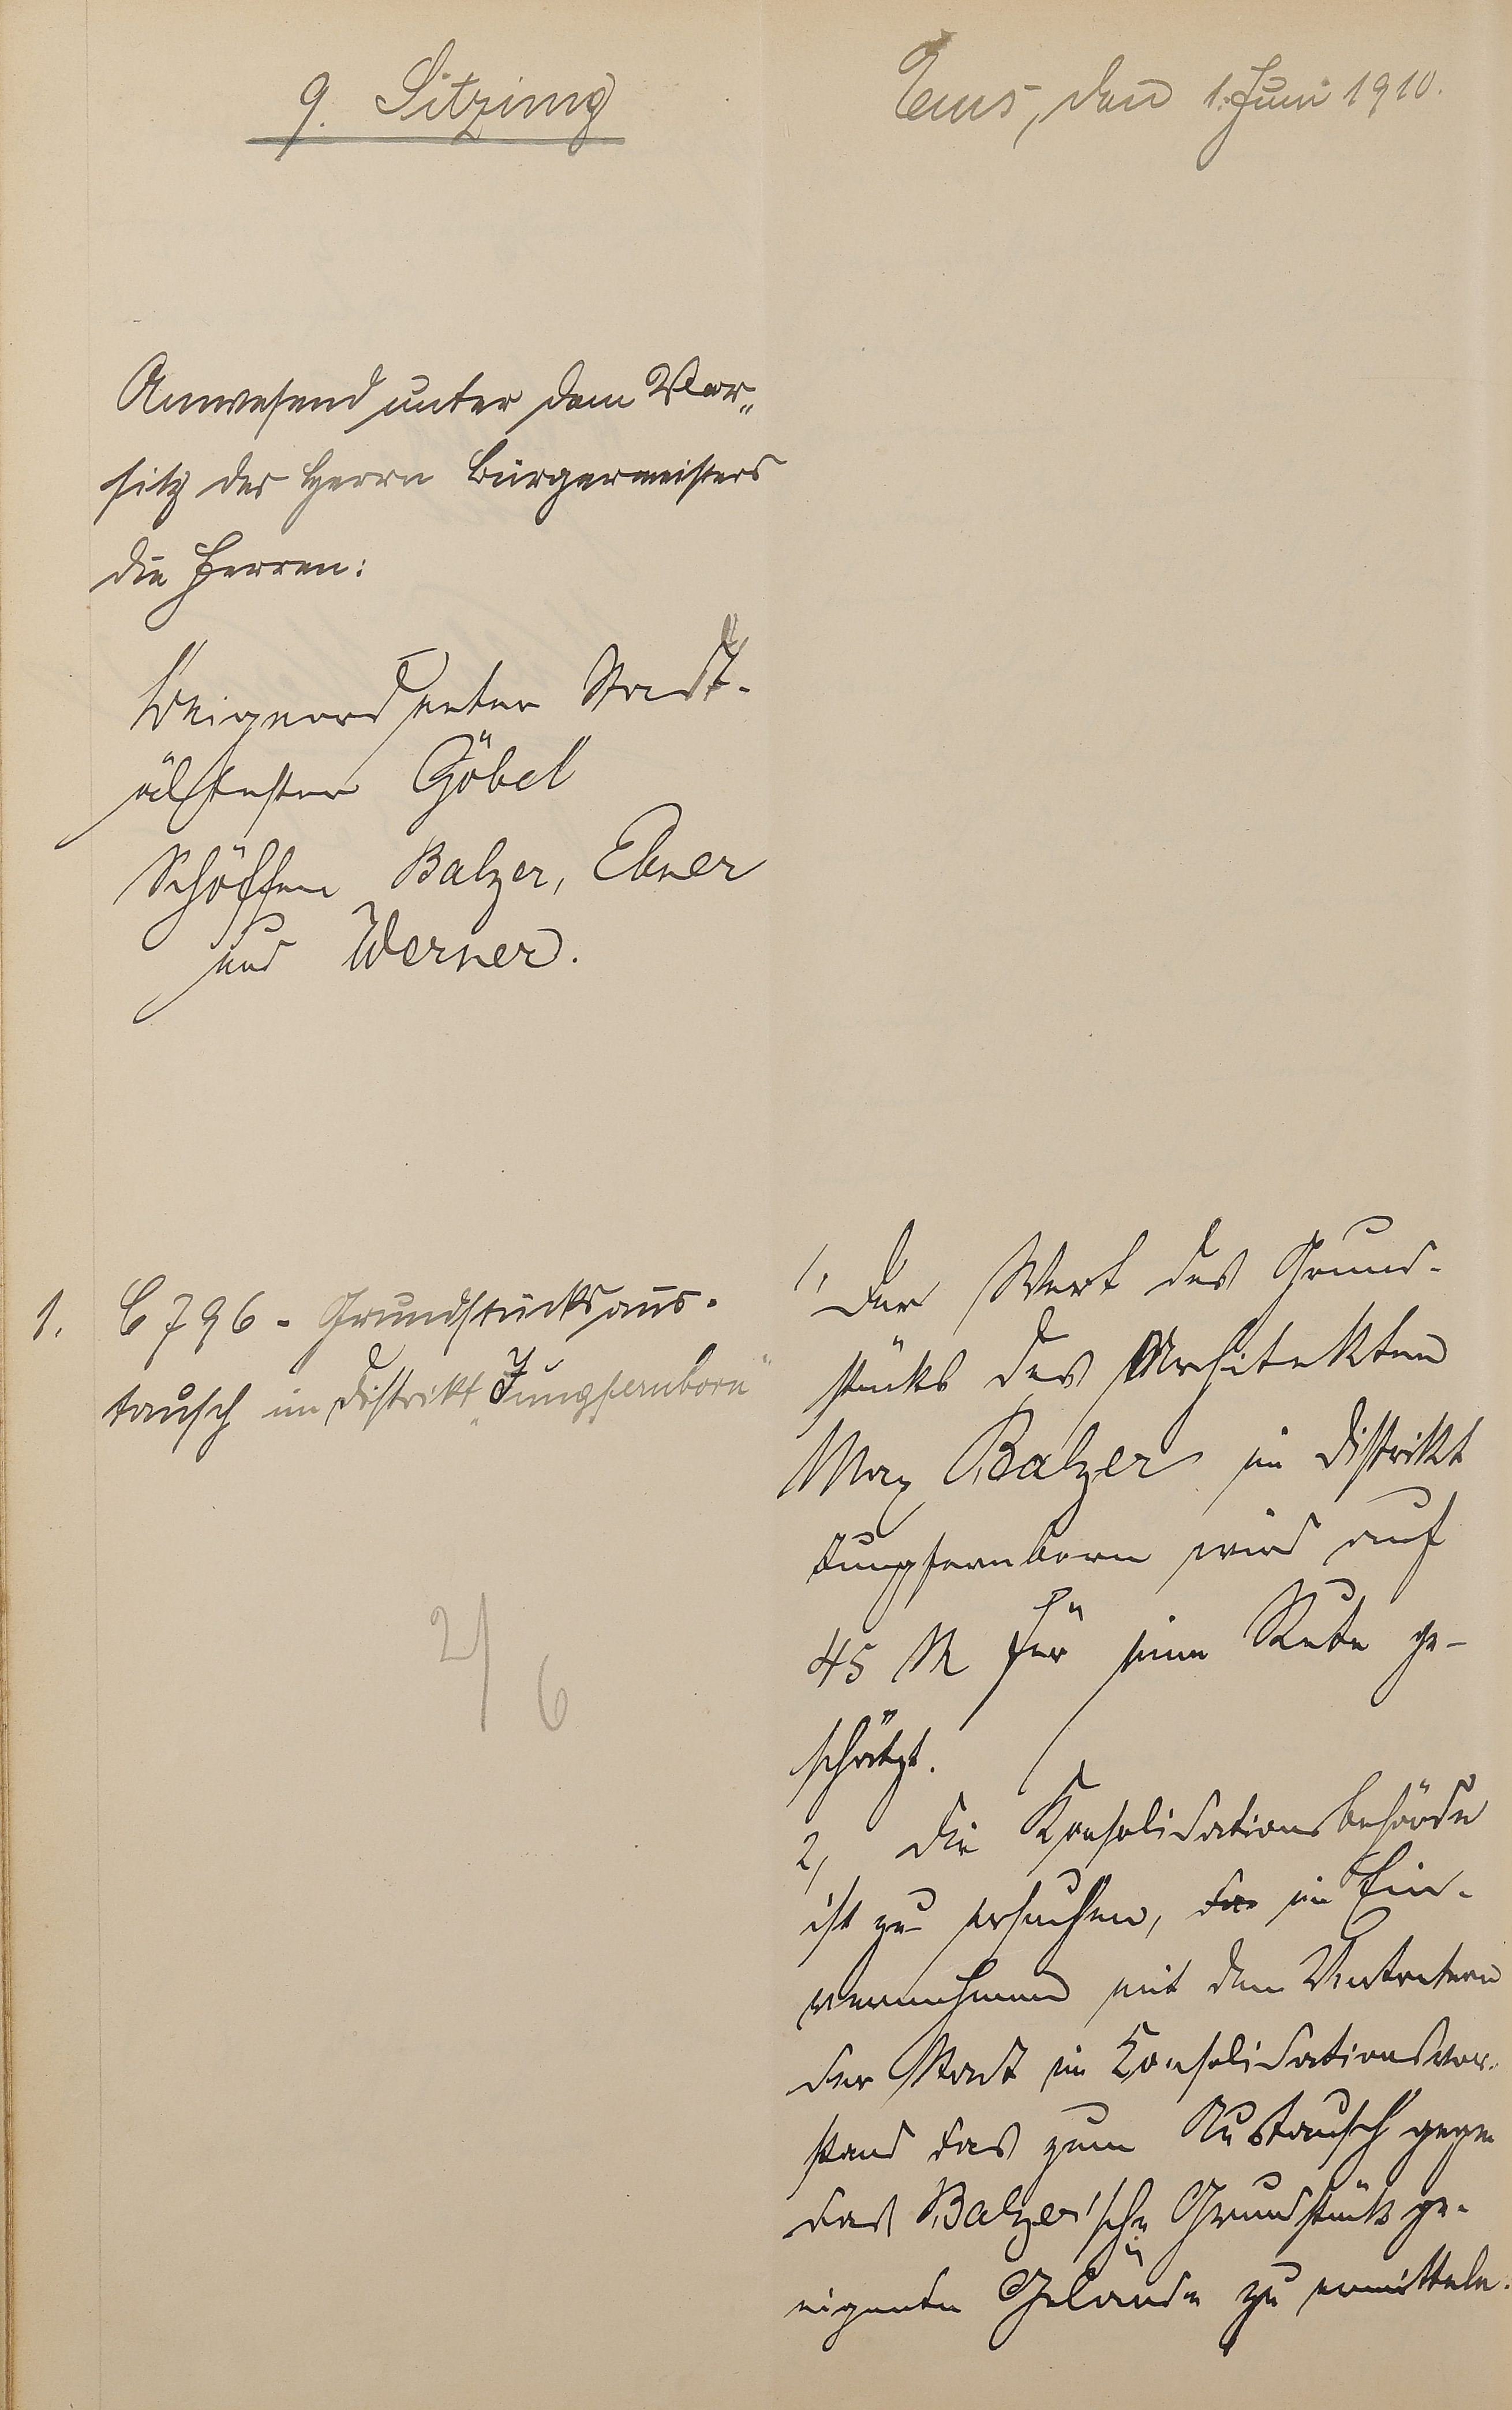 9. Sitzung
Ems, den 1. Juni 1910.
Anwesend unter dem Vor„
sitz des Herrn Bürgermeisters
die Herren:
Beigeordneter Stadt-
ältester Göbel
Schöffen Balzer, Ebner
und Werner.
1. C 796 - Grundstücksaus-
tausch im Distrikt „Jungfernborn"
2/6
1, Der Wert des Grund-
stücks des Architekten
Max Balzer im Distrikt
Jungfernborn wird auf
45 M für eine Rute ge-
schätzt.
2, Die Konsolidationsbehörde
ist zu ersuchen, im Ein-
vernehmen mit den Vertretern
der Stadt im Konsolidationsvor-
stand das zum Austausch gegen
das Balzer'sche Grundstück ge-
eignete Gelände zu ermitteln.